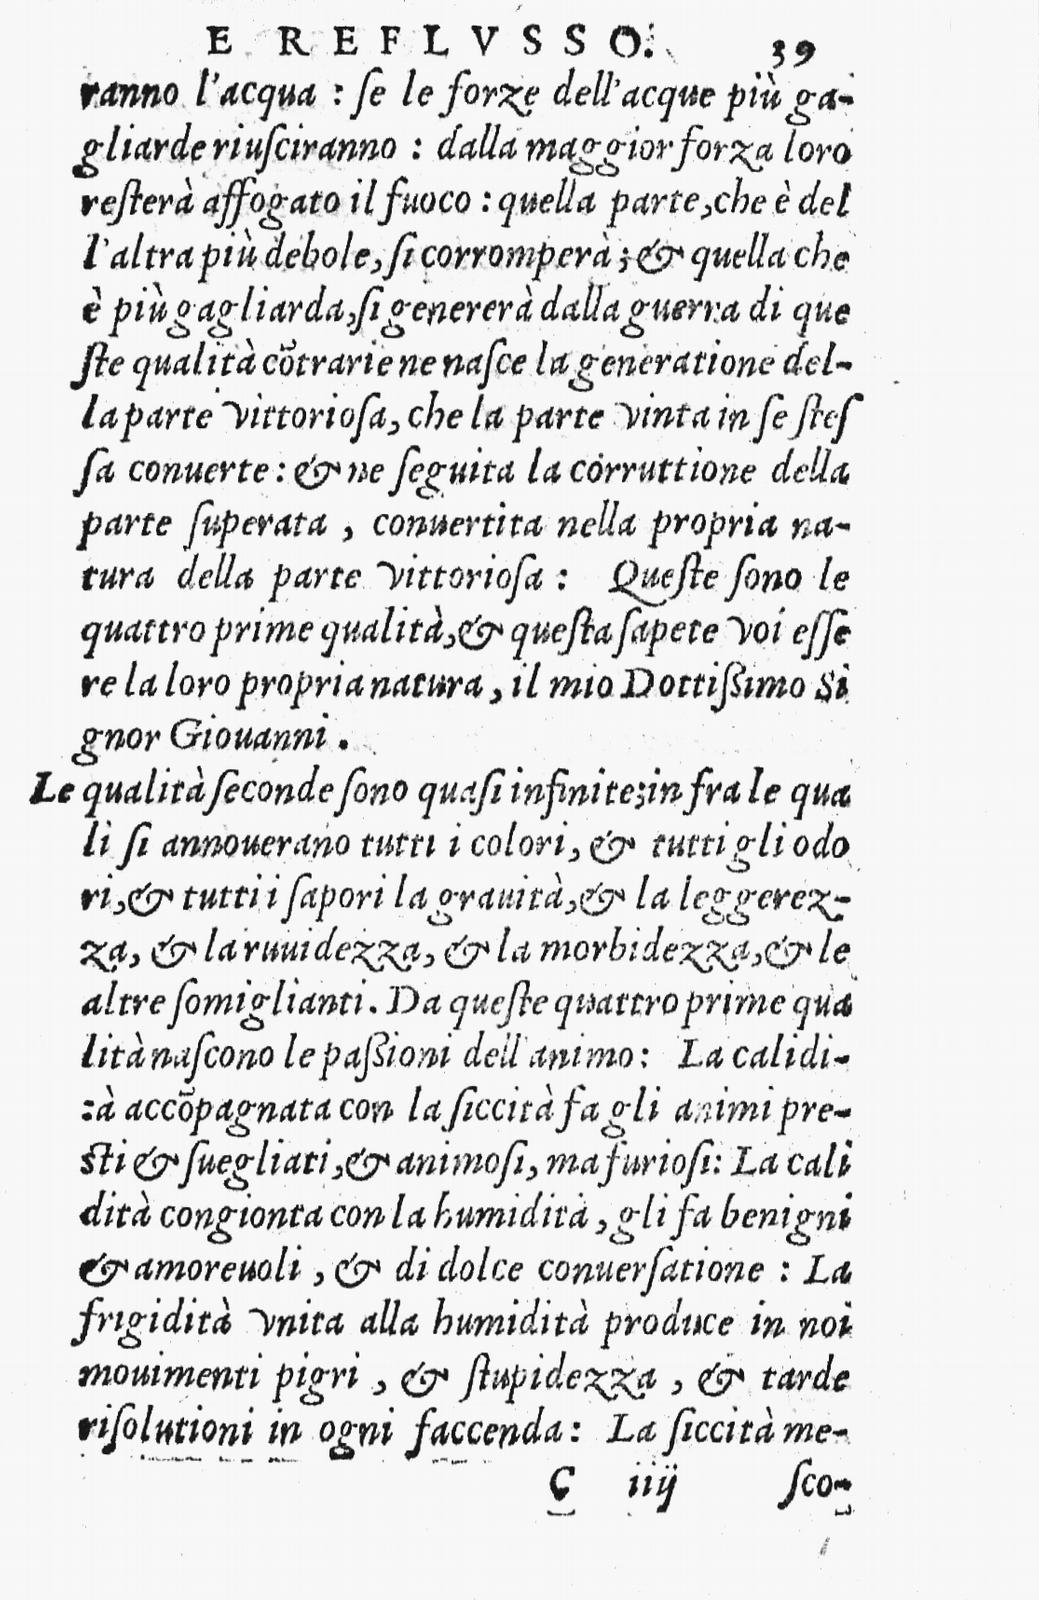 E REFLVSSO. 39
ranno l'acqua : ſe le forze dell'acque più ga-
gliarde riuſciranno : dalla maggior forza loro
reſterà affogato il fuoco : quella parte, che è del
l'altra più debole, ſi corromperà; & quella che
è più gagliarda, ſi genererà dalla guerra di que
ſte qualità cõtrarie ne naſce la generatione del-
la parte vittorioſa, che la parte vinta in ſe ſteſ
ſa conuerte: & ne ſeguita la corruttione della
parte ſuperata , conuertita nella propria na-
tura della parte vittorioſa : Queſte ſono le
quattro prime qualità, & queſta ſapete voi eſſe
re la loro propria natura, il mio Dottiſſimo Si
gnor Giouanni .
Le qualità ſeconde ſono quaſi infinite; in fra le qua
li ſi annouerano tutti i colori, & tutti gli odo
ri, & tutti i ſapori la grauità, & la leggerez-
za, & la ruuidezza, & la morbidezza, & le
altre ſomiglianti. Da queſte quattro prime qua
lità naſcono le paſſioni dell'animo: La calidi-
tà accõpagnata con la ſiccità fa gli animi pre-
sti & ſuegliati, & animoſi, ma furioſi: La cali
dità congionta con la humidità , gli fa benigni
& amoreuoli , & di dolce conuerſatione : La
frigidità vnita alla humidità produce in noi
mouimenti pigri , & ſtupidezza , & tarde
riſolutioni in ogni faccenda: La ſiccità me-
C iiij ſco-